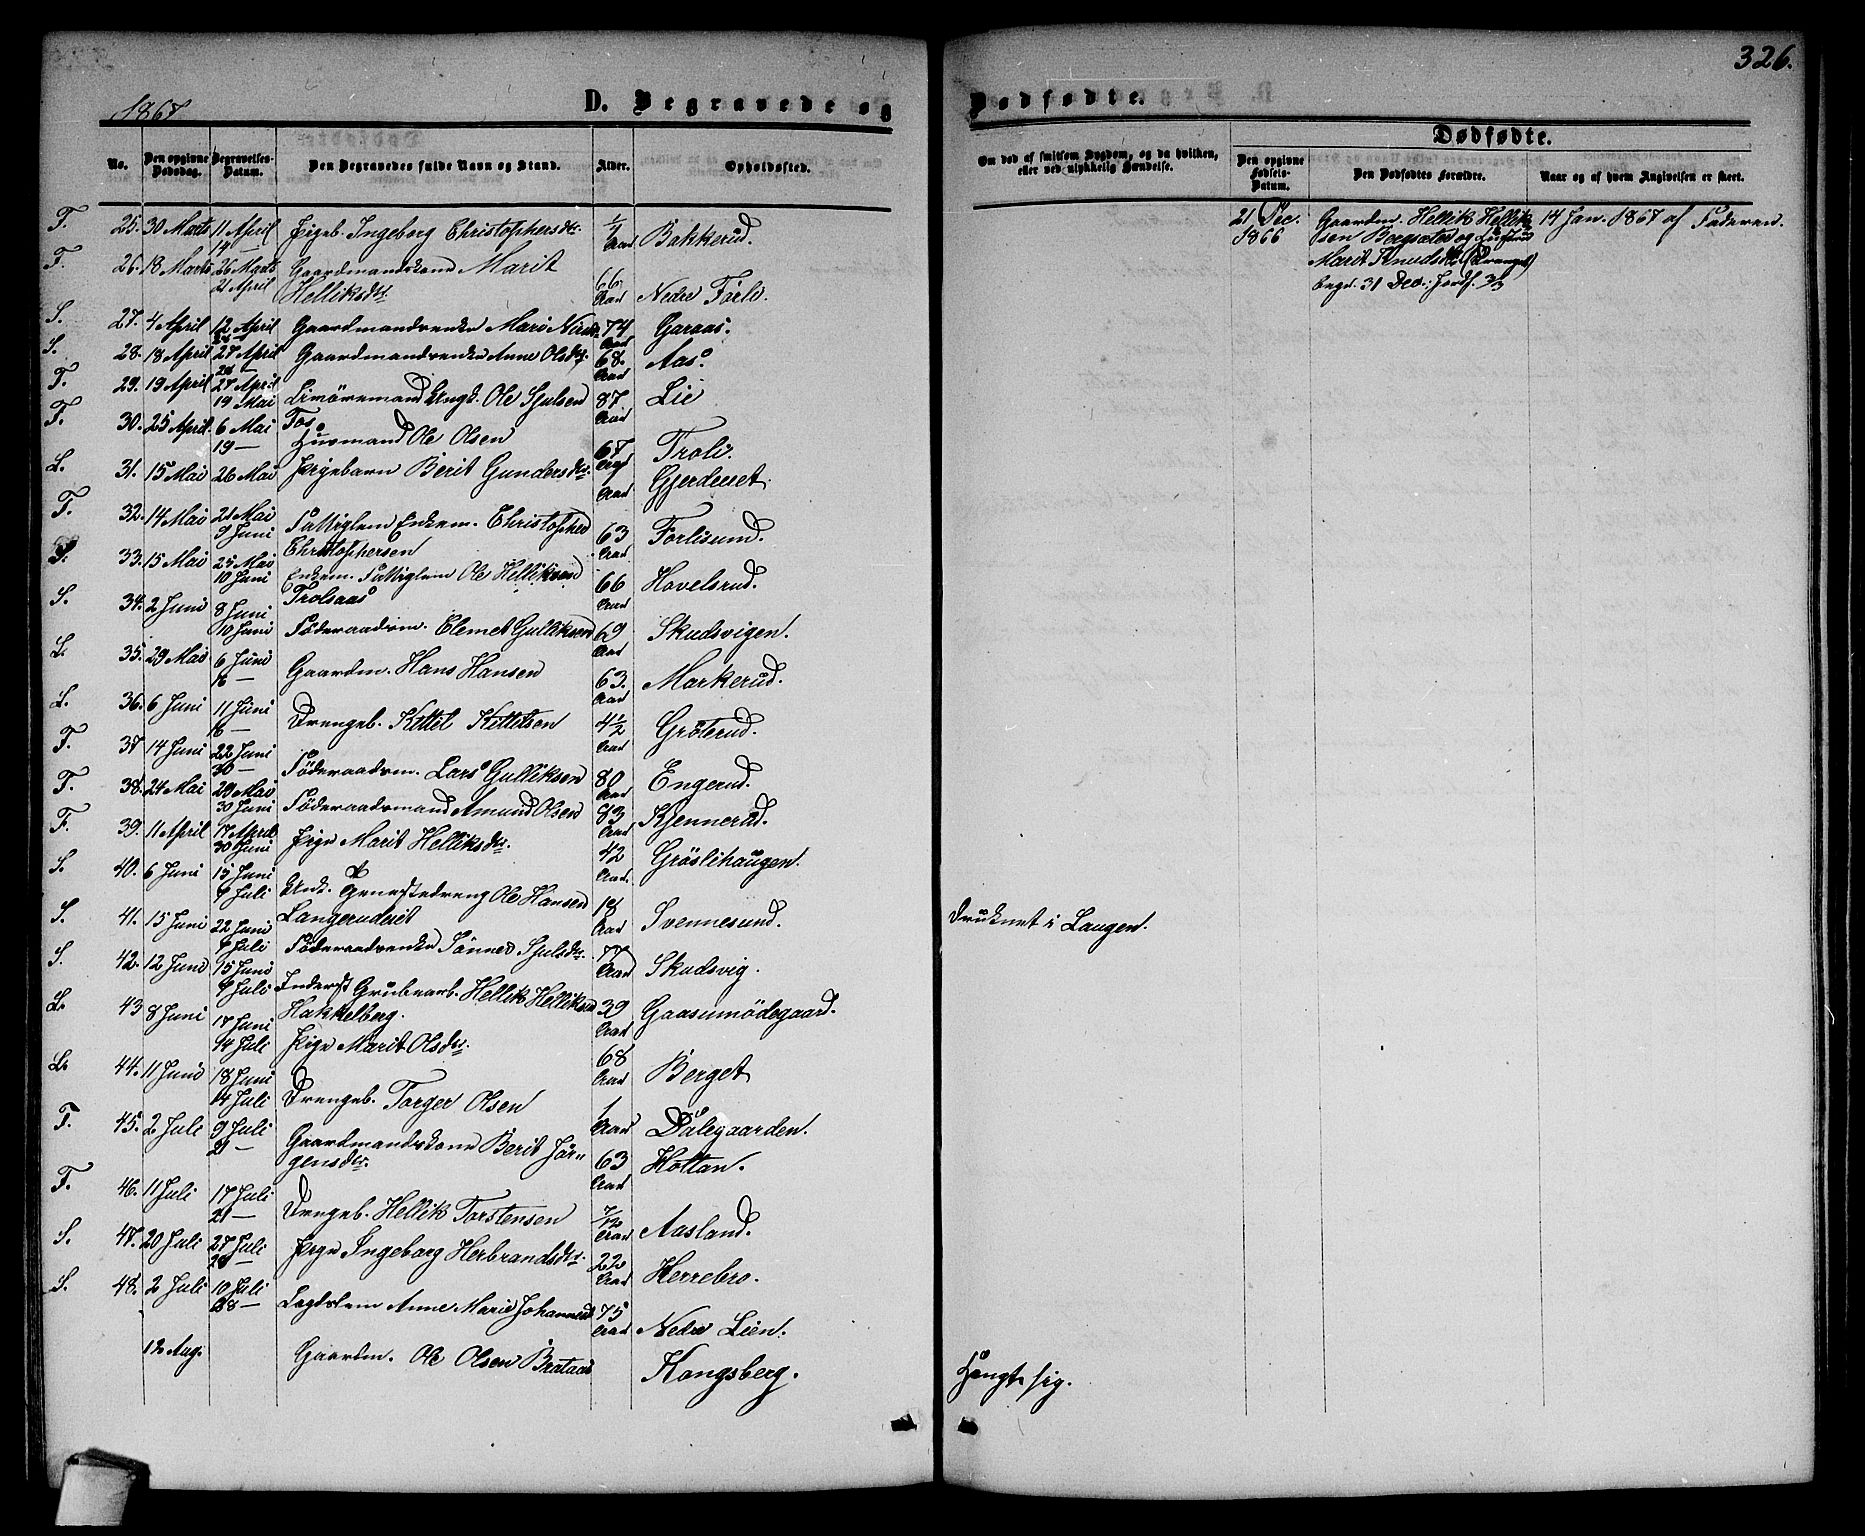 326.
1867
D. Begravede og
Dødfødte.
No.
Den opgivne Dødsdag.
Begravelses-Datum.
Den Begravedes fulde Navn og Stand.
Alder.
Opholdssted.
Om død af smitsom Sygdom, og da hvilken, eller ved ulykkelig Hændelse.
Dødfødte.
Den opgivne Fødsels-Datum.
Den Dødfødtes Forældre.
Naar og af hvem Angivelsen er skeet.
F. 25. 30 Marts 11 April 14 — Pigeb. Ingeborg Christophersdr. 1/1 Aar Bakkerud.
F. 26. 18 Marts 26 Marts 21 April Gaardmandskone Marit
Helliksdr. 66 Aar Nedre Førli.
S. 27. 4 April 12 April Gaardmandsenke Mari 74 Aar Garaas.
S. 28. 18 April 27 April 28 — Gaardmandsenke Anne Olsdr. 68. Aar Aas
F. 29. 19 April 27 April 19 Mai Ungk. Ole Sjulsen 87 Aar Lie
Fos.
F. 30. 25 April 6 Mai 19 — Husmand Ole Olsen 67 Aar Troli.
L. 31. 15 Mai 26 Mai Pigebarn Berit Gundersdr. Aar Gjerdeuet
F. 32. 14 Mai 21 Mai 9 Juni Fattiglem Enkem. Christopher
Christophersen 63 Aar Forlisund.
S. 33. 15 Mai 25 Mai 10 Juni Enkem. Fattiglem Ole Helliksen
Trolsaas 66 Aar Hovelsrud.
S. 34. 2 Juni 8 Juni 10 Juni Föderaadsm. Clemet Gulliksen 69 Aar Skudsvigen.
L. 35. 29 Mai 6 Juni 16 — Gaardm. Hans Hansen 63. Aar Markerud.
L. 36. 6 Juni 11 Juni 16 — Drengeb. Kittel Kittelsen 4 1/2 Aar Gröterud.
F. 37 14 Juni 22 Juni 30 — Föderaadsm. Lars Gulliksen 80 Aar Engerud.
F. 38. 24 Mai 29 Mai 30 Juni Föderaadsmand Amund Olsen 83 Aar Kjennerud.
F. 39. 11 April 17 April 30 Juni Pige Marit Helliksdr. 42 Aar Gröslihaugen.
S. 40. 6 Juni 15 Juni 7 Juli Ungk. Tjenestedreng Ole Hansen
Langerudeiet 18 Aar Svennesund. Druknet i Laugen.
S. 41. 15 Juni 22 Juni 7 Juli Föderaadsenke Sönnev Sjulsdr. 77 Aar Skudsvig.
S. 42. 12 Juni 15 Juni 7 Juli Inderst Grubearb. Hellik Helliksen
Hakkelberg. 39 Aar Gaasumödegaard.
L. 43 8 Juni 17 Juni 14 Juli Pige Marit Olsdr. 68 Aar Berget
L. 44. 11 Juni 18 Juni 14 Juli Drengeb. Torger Olsen 1 Aar Dalegaarden.
F. 45. 2 Juli 9 Juli 21 — Gaardmandskone Berit Jör-
gensdr. 63 Aar Hottan.
F. 46. 11 Juli 17 Juli 21 — Drengeb. Hellik Torstensen 7/12 Aar Aasland.
S. 47. 20 Juli 27 Juli 28 — Pige Ingeborg Herbrandsdr. 22 Aar Herrebro.
S. 48. 2 Juli 10 Juli 28 — Lægdslem Anne Marie Johannesd 75 Aar Nedre Lien.
12 Aug. Gaardm. Ole Olsen Brataas Kongsberg. Hængte sig.
21 Dec. 1866
Gaardm. Hellik Hellik-
sen Bergsæter og Hustru
Marit Knudsdr. (Drengeb)
begr. 31 Dec: Jordf.
14 Jan. 1867 af Faderen.